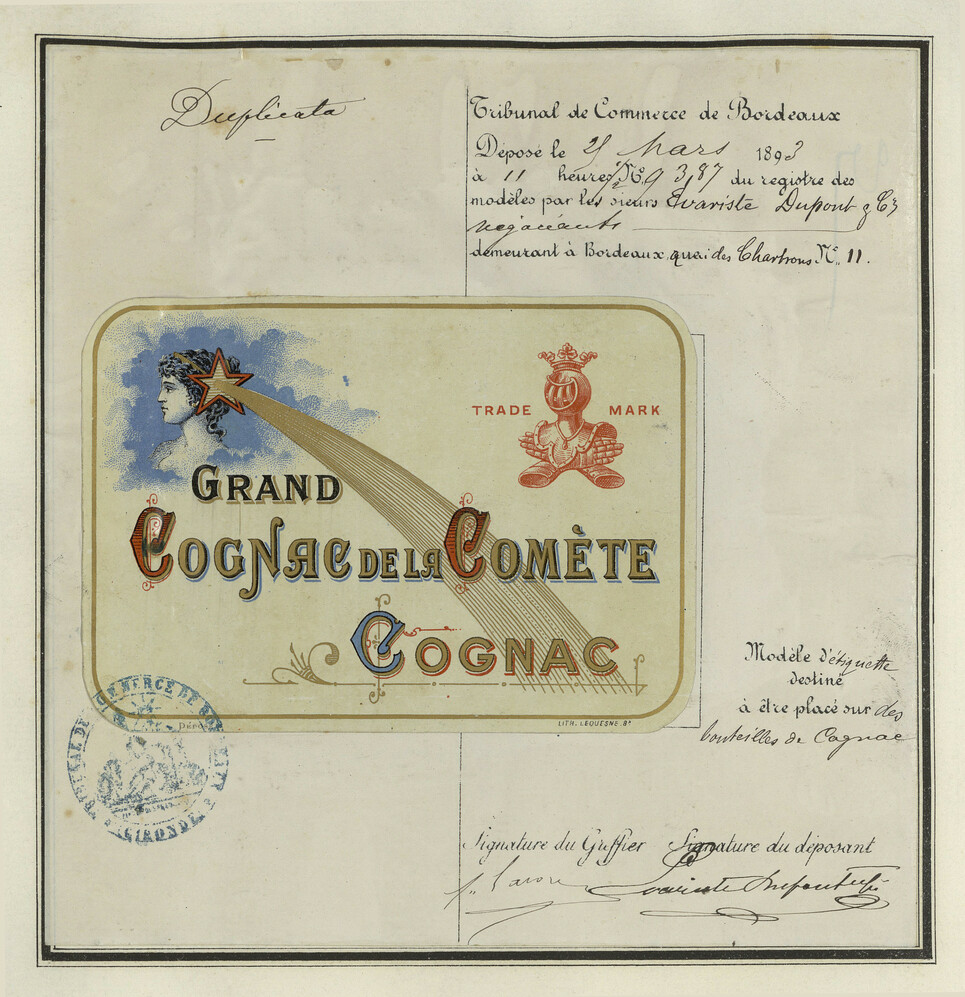 Duplicata
Tribunal de Commerce de Bordeaux
Déposé le 25 Mars 1893
à 11 heures ½ Nº 9387 du registre des
modèles par les sieurs Evariste Dupont & Cie
négociants
demeurant à Bordeaux, quai des Chartrons Nº 11.
TRADE MARK
GRAND
COGNAC DE LA COMÈTE
COGNAC
LITH. LEQUESNE. Bx
Dépo
Modèle d'étiquette
destiné
à être placé sur des
bouteilles de Cognac
TRIBUNAL DE COMMERCE DE BORDEAUX
GIRONDE
Signature du Greffier Signature du déposant
Evariste Dupont & Cie